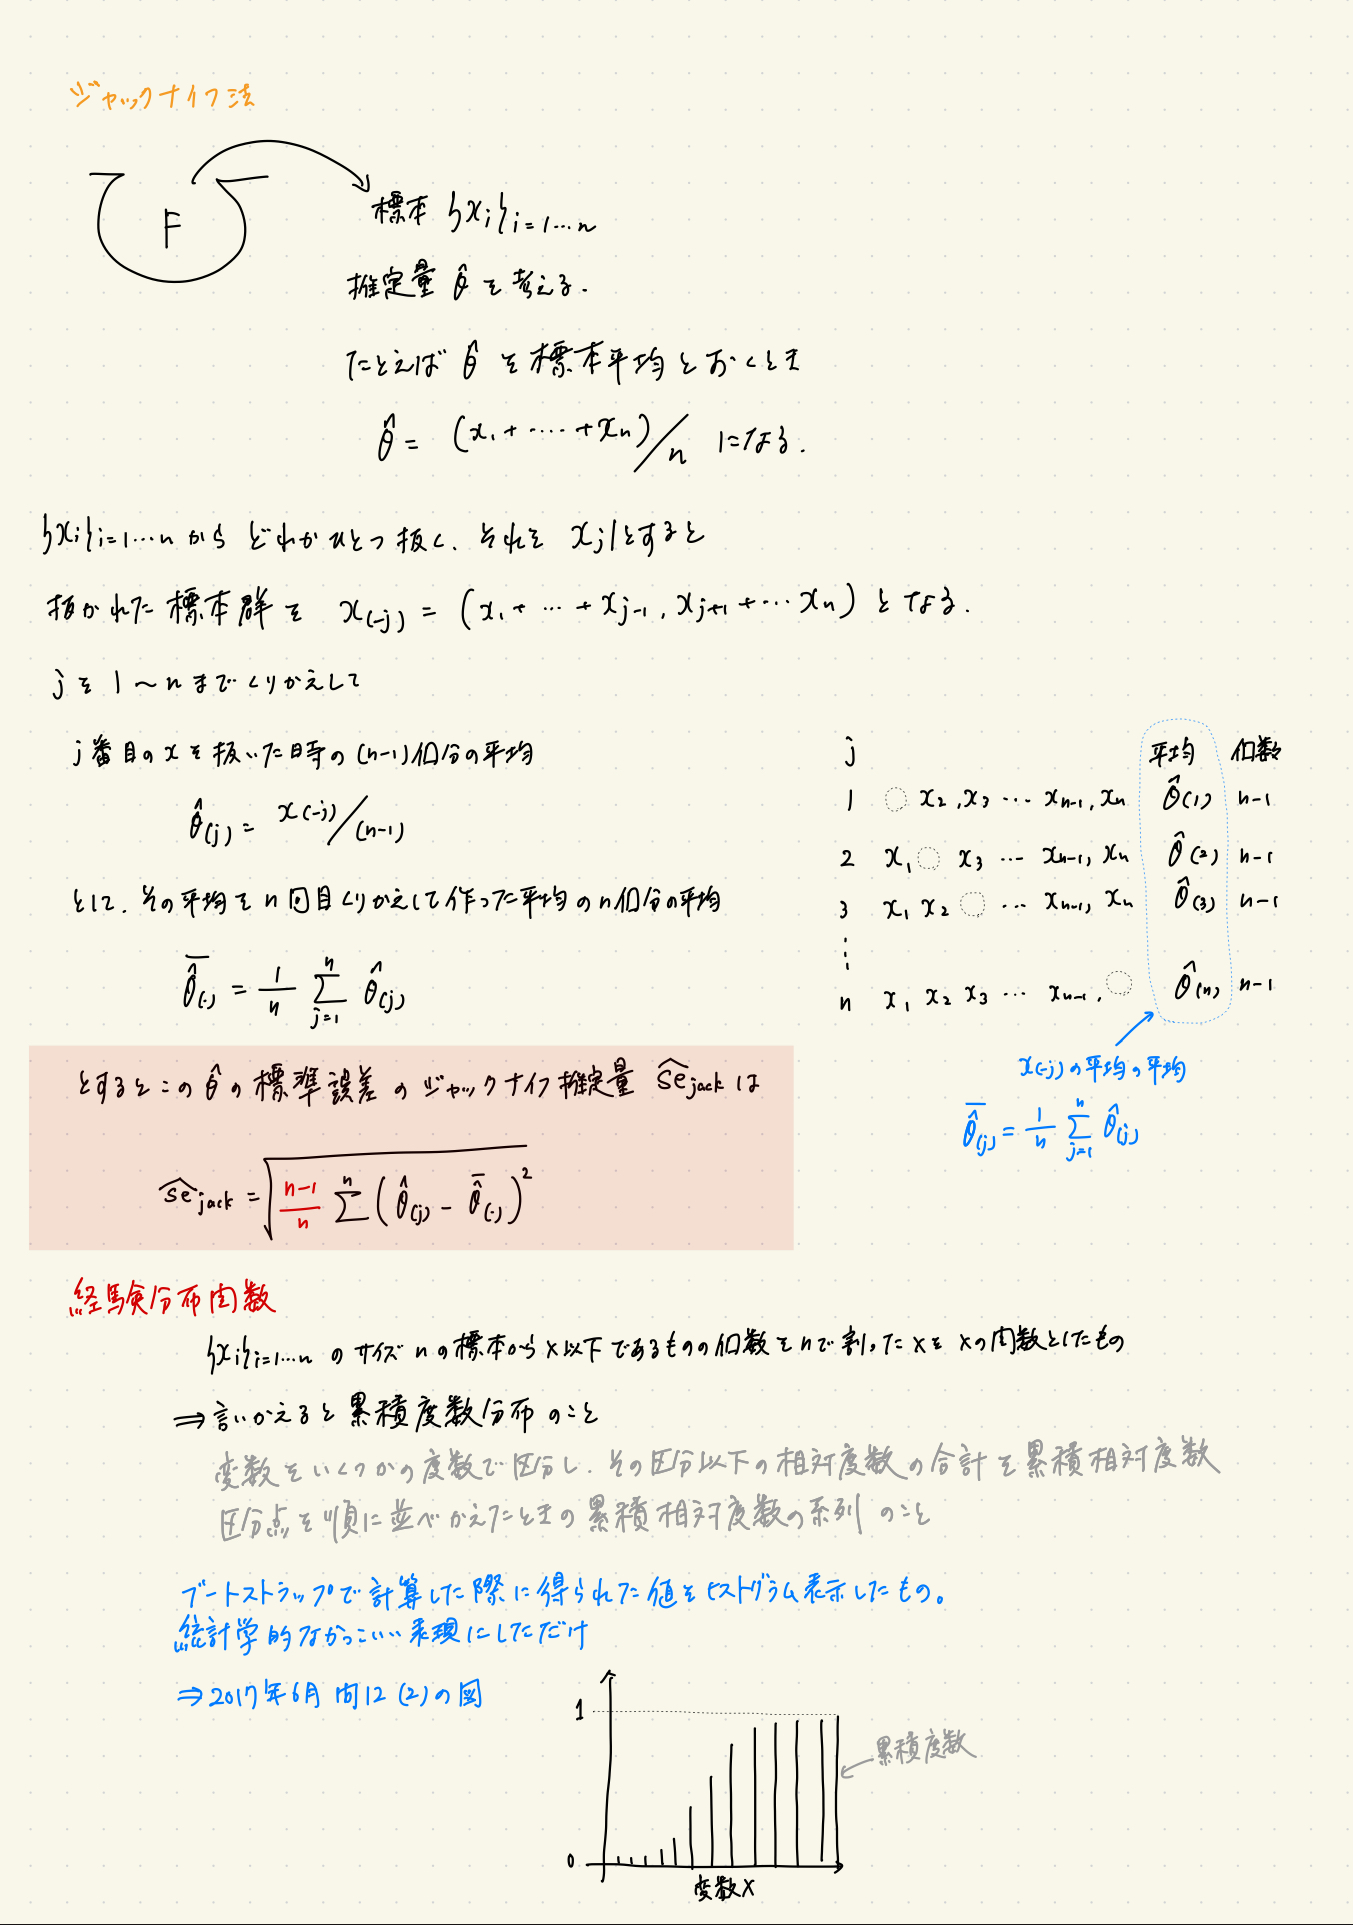 ジャックナイフ法
F
標本 {xi}i=1…n
推定量 θ̂ を考える.
たとえば θ̂ を標本平均とおくとき
θ̂ = (x1+……+xn)/n になる.
{xi}i=1…n から どれかひとつ抜く. それを xj とすると
抜かれた標本群を x(-j) = (x1+…+xj-1, xj+1+…xn) となる.
jを 1〜nまでくりかえして
j番目のxを抜いた時の(n-1)個分の平均
θ̂(j) = x(-j)/(n-1)
として. その平均をn回目くりかえして作った平均のn個分の平均
θ̂̅(·) = 1/n Σ[j=1→n] θ̂(j)
j 平均 個数
1 ◌ x2, x3 … xn-1, xn θ̂(1) n-1
2 x1 ◌ x3 … xn-1, xn θ̂(2) n-1
3 x1 x2 ◌ … xn-1, xn θ̂(3) n-1
⋮
n x1 x2 x3 … xn-1, ◌ θ̂(n) n-1
x(-j)の平均の平均
θ̂̅(j) = 1/n Σ[j=1→n] θ̂(j)
とするとこのθ̂の標準誤差のジャックナイフ推定量 ŝejackは
ŝejack = √( n-1/n Σ[n] (θ̂(j) - θ̂̅(·))² )
経験分布関数
{xi}i=1…n のサイズnの標本からx以下であるものの個数をnで割ったxをxの関数としたもの
⇒ 言いかえると累積度数分布のこと
変数をいくつかの度数で区分し. その区分以下の相対度数の合計を累積相対度数
区分点を順に並べかえたときの累積相対度数の系列 のこと
ブートストラップで計算した際に得られた値をヒストグラム表示したもの。
統計学的なかっこいい表現にしただけ
⇒2017年6月 問12 (2)の図
1
累積度数
0
変数X